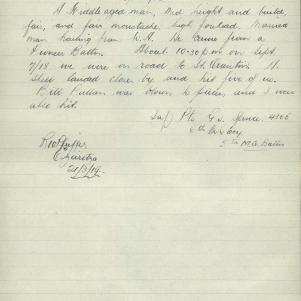 A Middle aged man, Med height and build,
fair, and fair moustache, high forehead. Married
man hailing from W.A. He came from a
Pioneer Battn. About 10-30 p.m on Sept
7/18 we were on road to St. Quentin. A
Shell landed close by and hit five of us.
Bill Pullan was blown to pieces, and I was
also hit.
Pte G. 4106
5th M.G. Battn
21/3/19.